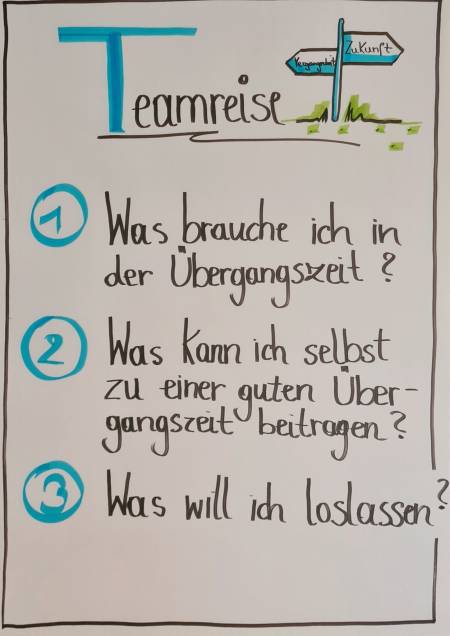 Teamreise
Vergangenheit
Zukunft
1
Was brauche ich in
der Übergangszeit?
2
Was kann ich selbst
zu einer guten Über-
gangszeit beitragen?
3
Was will ich loslassen?